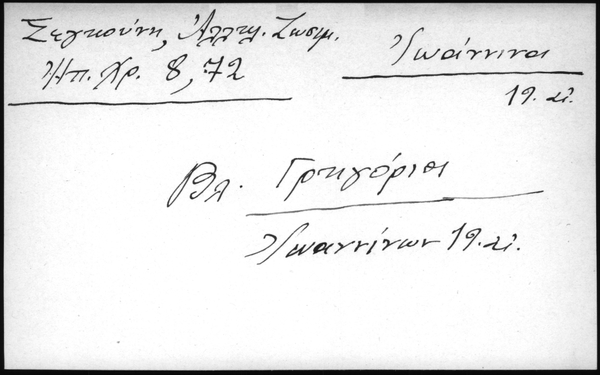 Σεγκούνη, Ἀλληλ. Ζωσιμ.
Ἠπ. Χρ. 8, 72
Ἰωάννινα
19. αἰ.
Βλ. Γρηγόριοι
Ἰωαννίνων 19. αἰ.